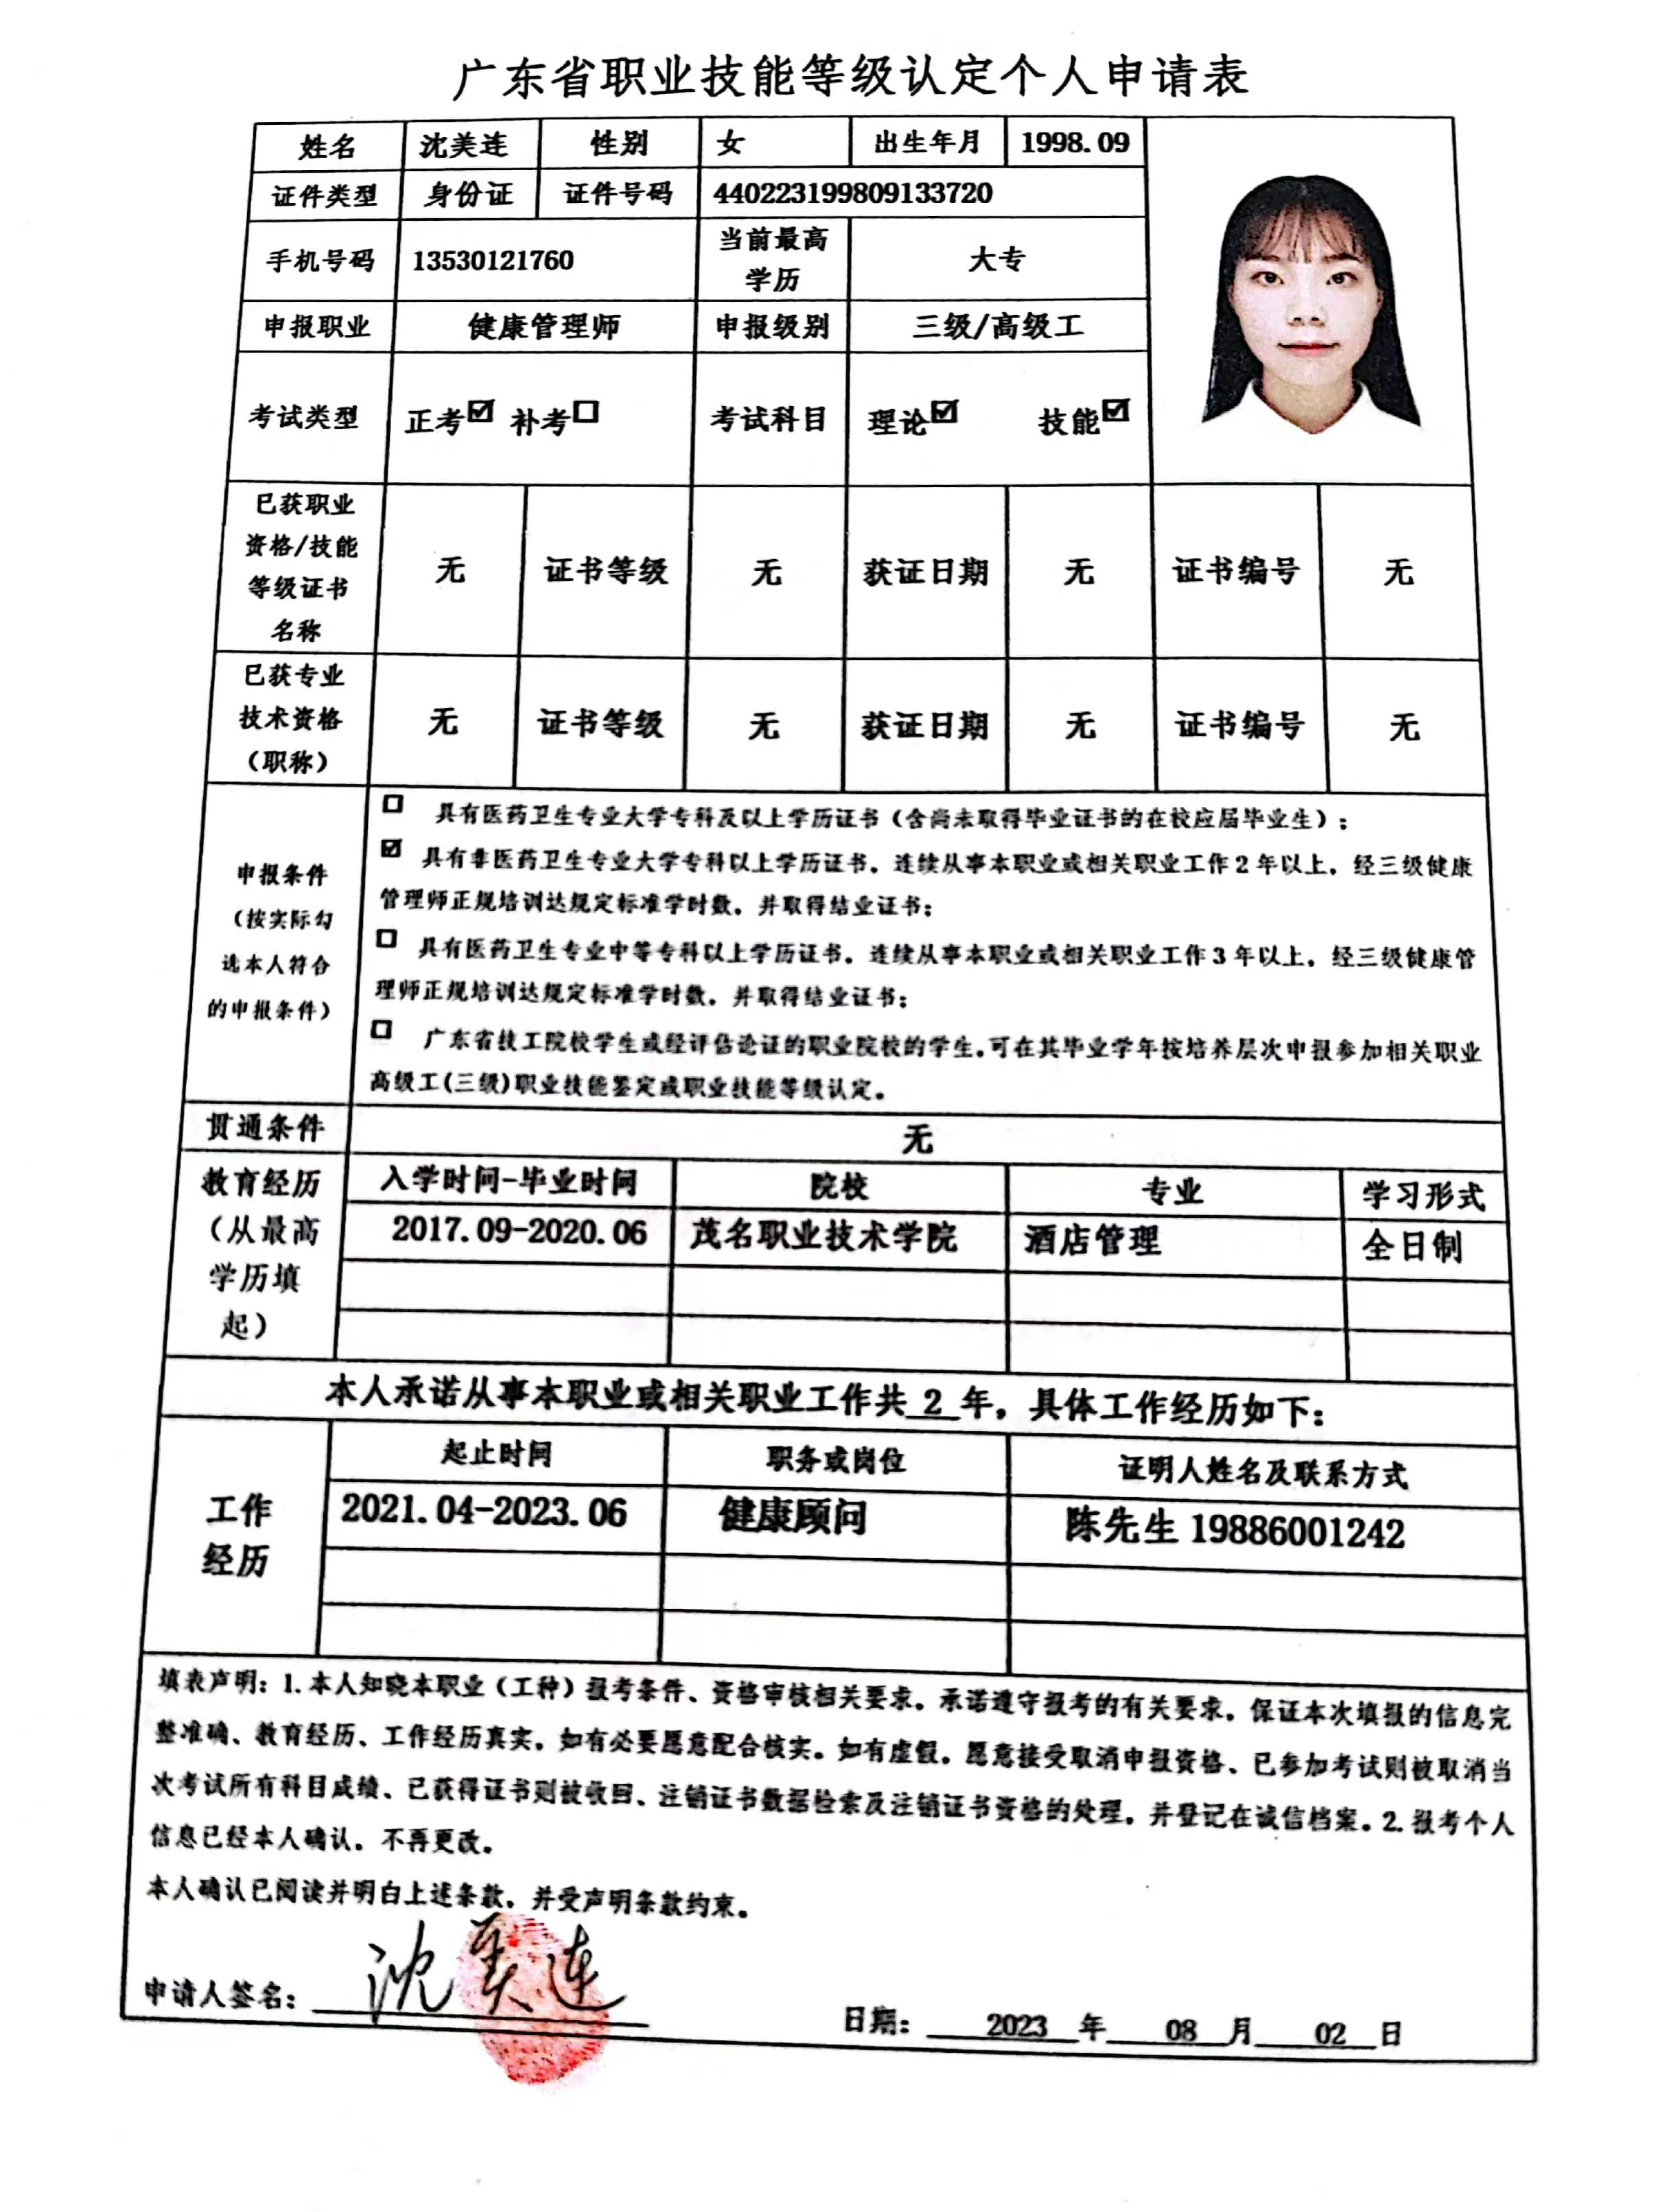 广东省职业技能等级认定个人申请表
姓名 沈美连 性别 女 出生年月 1998.09
证件类型 身份证 证件号码 440223199809133720
手机号码 13530121760 当前最高学历 大专
申报职业 健康管理师 申报级别 三级/高级工
考试类型 正考☑ 补考☐ 考试科目 理论☑ 技能☑
已获职业
资格/技能
等级证书
名称
无 证书等级 无 获证日期 无 证书编号 无
已获专业
技术资格
（职称）
无 证书等级 无 获证日期 无 证书编号 无
申报条件
（按实际勾
选本人符合
的申报条件）
☐ 具有医药卫生专业大学专科及以上学历证书（含尚未取得毕业证书的在校应届毕业生）；
☑ 具有非医药卫生专业大学专科以上学历证书，连续从事本职业或相关职业工作2年以上，经三级健康
管理师正规培训达规定标准学时数，并取得结业证书；
☐ 具有医药卫生专业中等专科以上学历证书，连续从事本职业或相关职业工作3年以上，经三级健康管
理师正规培训达规定标准学时数，并取得结业证书；
☐ 广东省技工院校学生或经评估论证的职业院校的学生,可在其毕业学年按培养层次申报参加相关职业
高级工(三级)职业技能鉴定或职业技能等级认定。
贯通条件 无
教育经历
（从最高
学历填
起）
入学时间-毕业时间 院校 专业 学习形式
2017.09-2020.06 茂名职业技术学院 酒店管理 全日制
本人承诺从事本职业或相关职业工作共 2 年，具体工作经历如下：
工作
经历
起止时间 职务或岗位 证明人姓名及联系方式
2021.04-2023.06 健康顾问 陈先生 19886001242
填表声明：1.本人知晓本职业（工种）报考条件、资格审核相关要求，承诺遵守报考的有关要求，保证本次填报的信息完
整准确、教育经历、工作经历真实，如有必要愿意配合核实。如有虚假，愿意接受取消申报资格、已参加考试则被取消当
次考试所有科目成绩、已获得证书则被收回、注销证书数据检索及注销证书资格的处理，并登记在诚信档案。2.报考个人
信息已经本人确认，不再更改。
本人确认已阅读并明白上述条款，并受声明条款约束。
申请人签名： 沈美连
日期： 2023 年 08 月 02 日